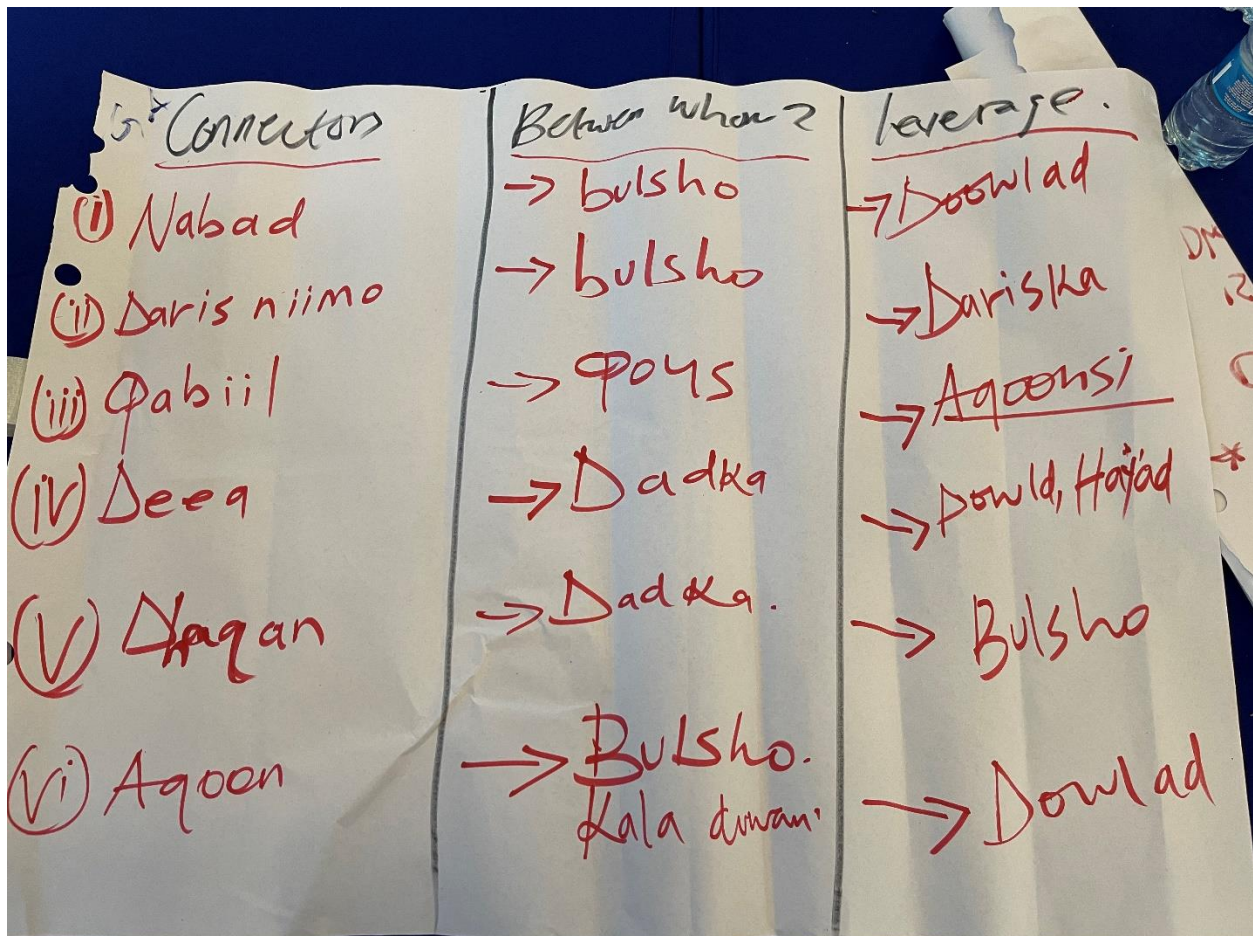 Connectors | Between whom? | leverage.
(i) Nabad → bulsho → Doowlad
(ii) Daris niimo → bulsho → Dariska
(iii) Qabiil → Qoys → Aqoonsi
(iv) Deeq → Dadka → Dowld, Hay'ad
(V) Dhaqan → Dadka. → Bulsho
(Vi) Aqoon → Bulsho. → Dowlad
Kala duwan.